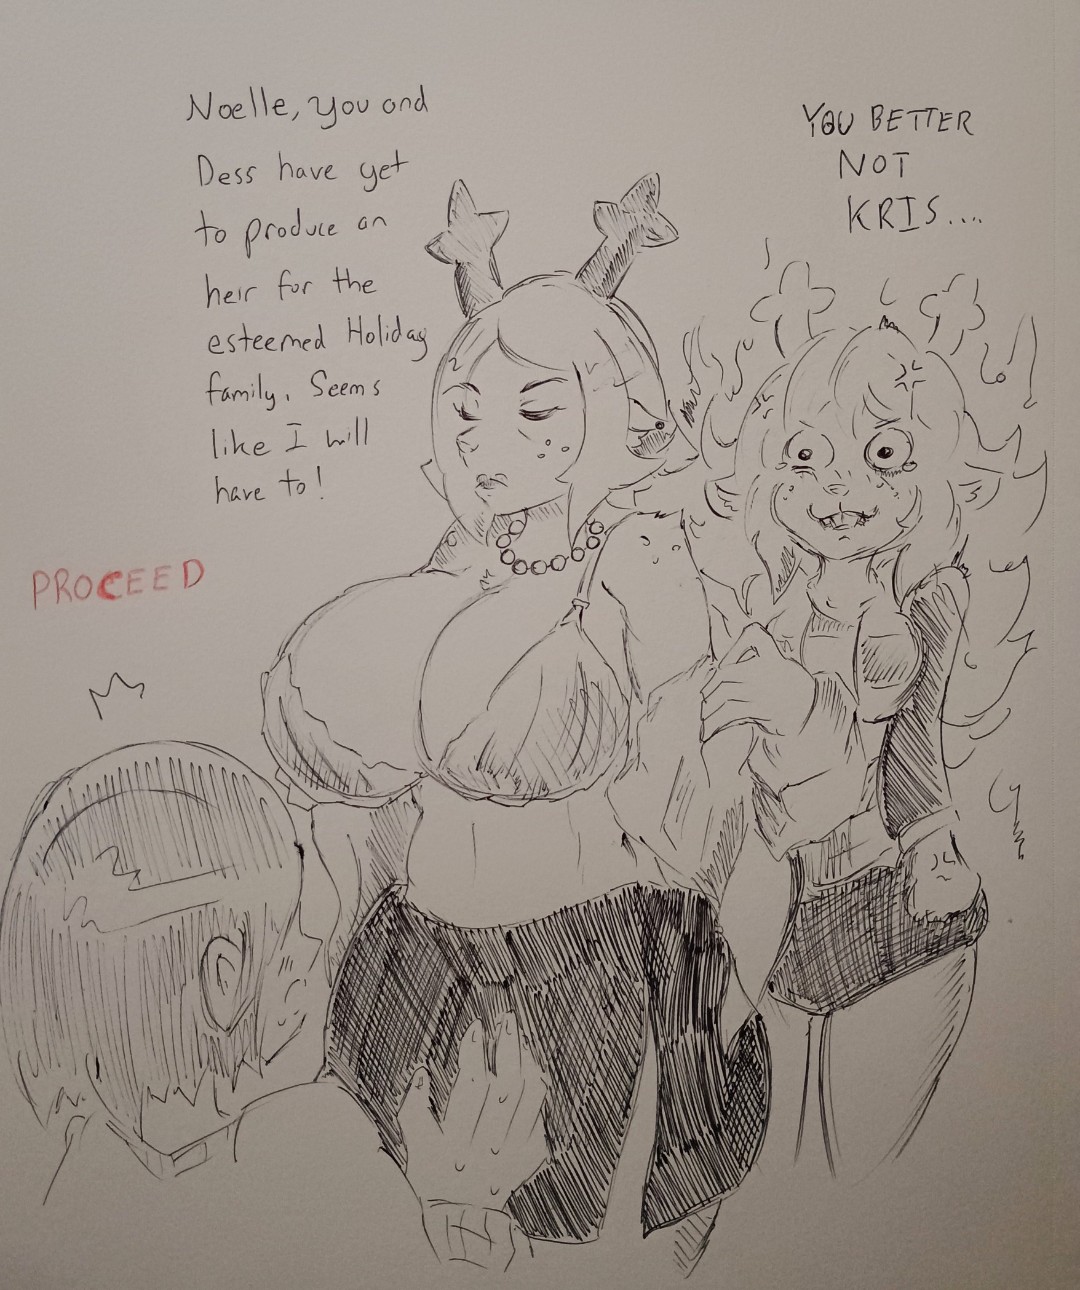 Noelle, you and
Dess have yet
to produce an
heir for the
esteemed Holiday
family. Seems
like I will
have to!
YOU BETTER
NOT
KRIS....
PROCEED